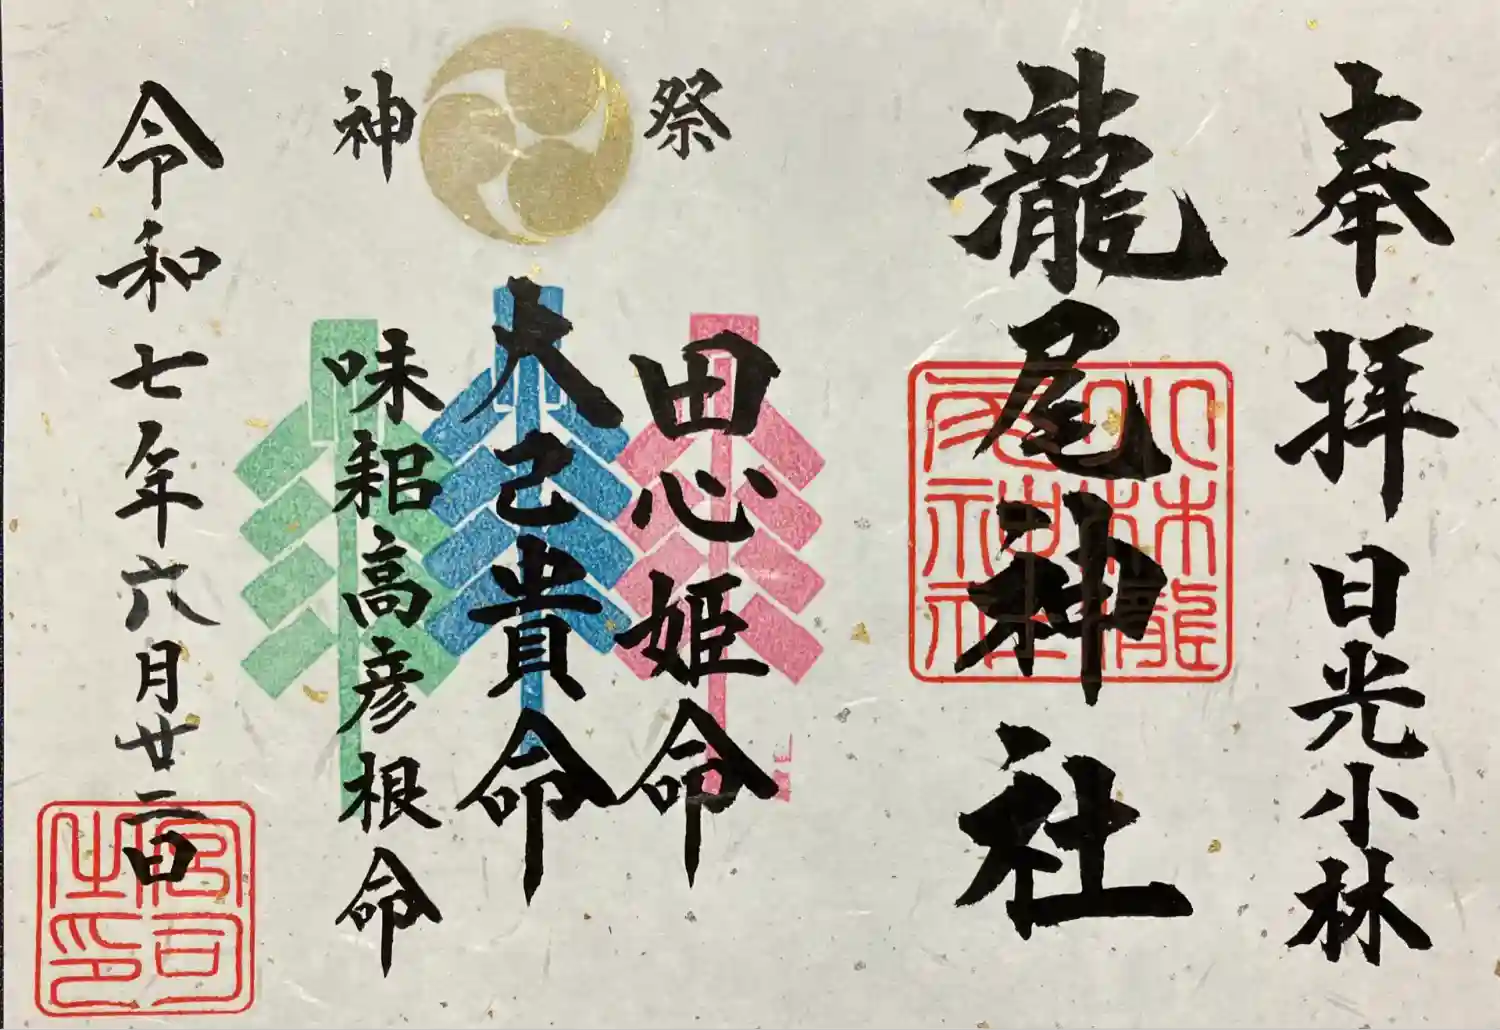 奉拝 日光小林
瀧尾神社
小林瀧尾神社
祭神
田心姫命
大己貴命
味耜高彦根命
令和七年六月廿二日
宮司之印